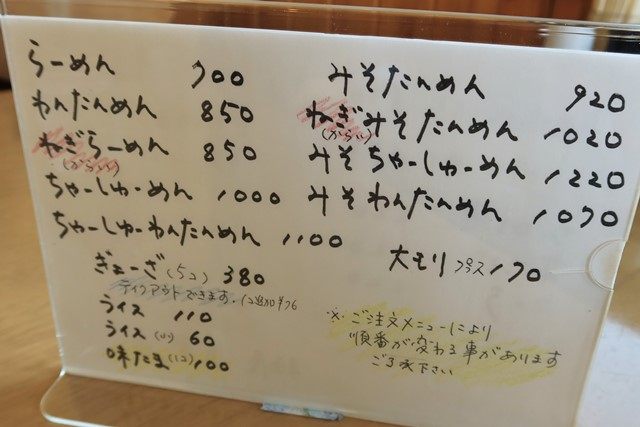 らーめん 700
わんたんめん 850
ねぎらーめん 850
(からい)
ちゃーしゅーめん 1000
ちゃーしゅーわんたんめん 1100
ぎょーざ(5コ) 380
テイクアウトできます。1コ追加¥76
ライス 110
ライス(小) 60
味たま(1コ)100
みそたんめん 920
ねぎみそたんめん 1020
(からい)
みそちゃーしゅーめん 1220
みそわんたんめん 1070
大モリ プラス170
※ご注文メニューにより
順番が変わる事があります
ご了承下さい